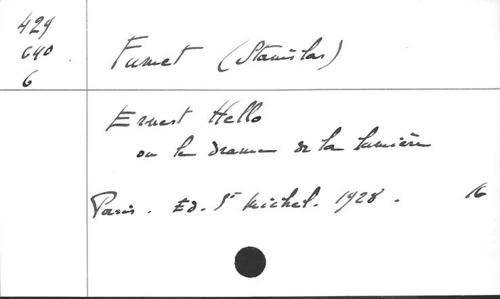 429
640
6
Fumet (Stanislas)
Ernest Hello
ou le drame de la lumière
Paris. Ed. St Michel. 1928. 16